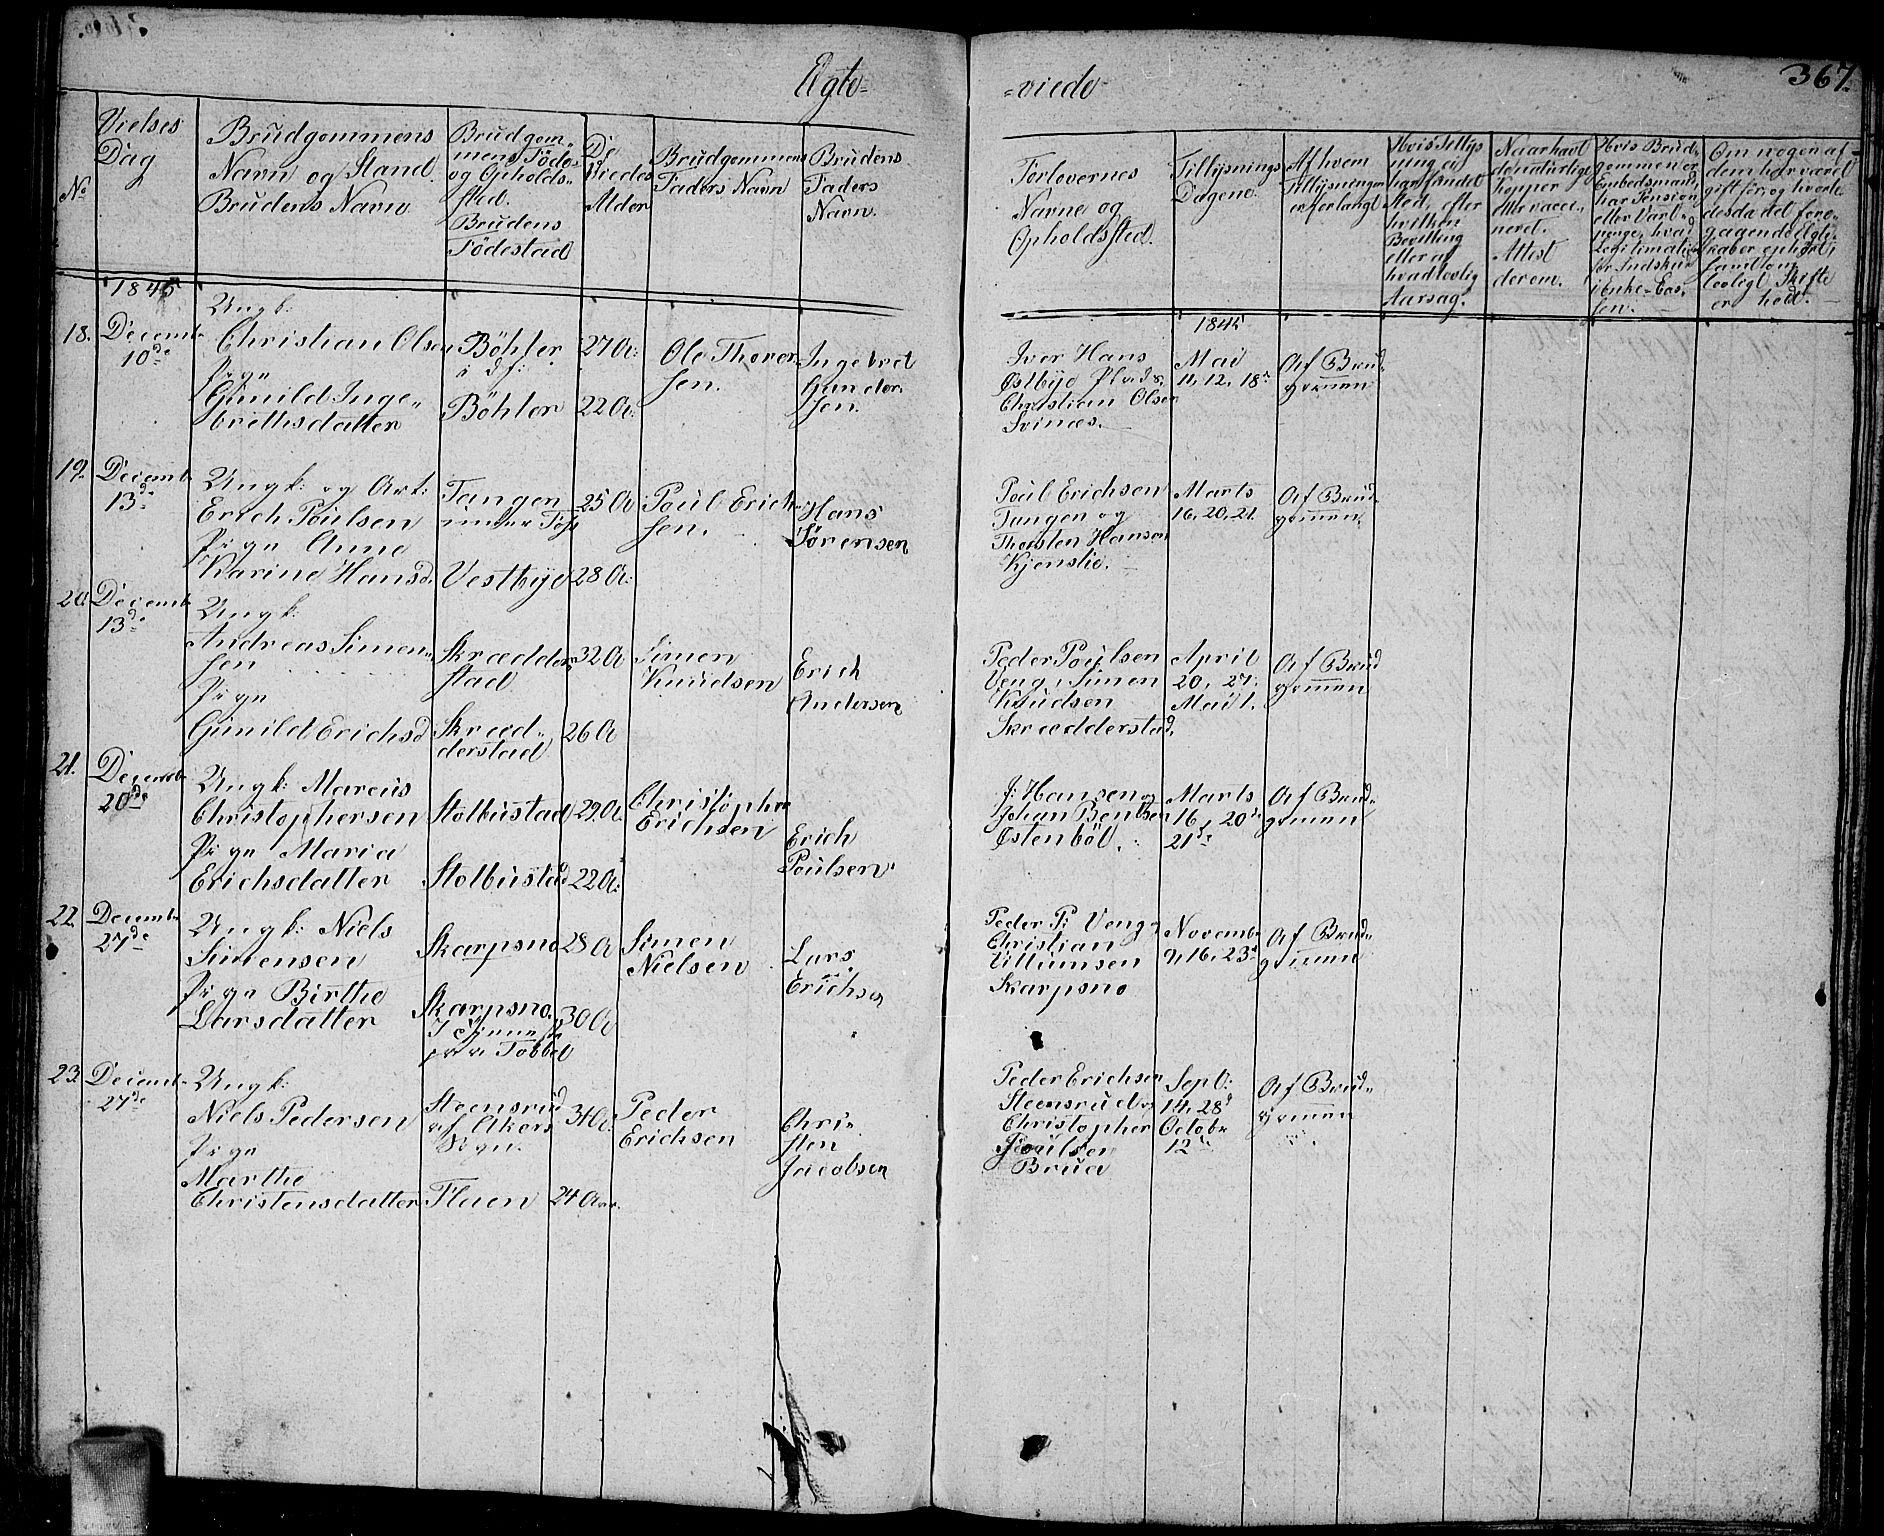 Egte-
-viede
367.
No
Vielses
Dag
Brudgommens
Navn og Stand.
Brudens Navn
Brudgom-
mens Föde-
og Opholds-
sted.
Brudens
Födestad
De
Viedes
Alder
Brudgommens
Faders Navn
Brudens
Faders
Navn.
Forlovernes
Navne og
Opholdssted.
Tillysnings
Dagene.
Af hvem
Tillysningen
er forlangt
Hvis Tillys
ning ei
har fundet
Sted, efter
hvilken
Bevilling
eller af
hvad lovlig
Aarsag.
Naar havt
de naturlige
kopper
eller vacci-
neret.
Attest
derom.
Hvis Brud-
gommen og
Embedsmand
har Pension
eller Vart-
penge, hvad
Legitimation
for Indskud
i Enke-Cas-
sen.
Om nogen af
dem har været
gift för, og hvorle-
des da det fore-
gagende Egte-
skab er ophört,
samt om
lovligt Skifte
er holdt.
1845
18. Decemb.
10de
Ungk:
Christian Olsen
Pige
Gunild Inge-
brethsdatter
Böhler
i df:
Böhler
27 A:
22 A:
Ole Thorer-
sen.
Ingebret
Gunder-
sen.
1845
Iver Hans
Østbye Plads,
Christian Olsen
Svines.
Mai
11, 12, 18de
Af Brud-
gommen
19. Decemb.
13de
Ungk: og Art:
Erich Poulsen
Pige Anne
Karine Hansd.
Tangen
under Foss
Vestbye
25 A
28 A:
Poul Erich-
sen.
Hans
Sørensen
Poul Erichsen
Tangen og
Thorsten Hansen
Kjenslie.
Marts
16, 20, 21.
Af Brud-
gommen
20. Decemb.
13de
Ungk:
Andreas Simen-
sen
Pige
Gunild Erichsd
Skrædder
stad
Skræd-
derstad
32 A
26 A
Simen
Knudsen
Erich
Andersen
Peder Poulsen
Veng, Simen
Knudsen
Skrædderstad.
April
20, 27.
Mai 1.
Af Brud
gommen
21. Decemb.
20de
Ungk: Marcus
Christophersen
Pige Maria
Erichsdatter
Stolbustad
Stolbustad
29 A:
22 A:
Christopher
Erichsen
Erich
Poulsen
J: Hansen og
Johan Bentsen
Østenböl.
Marts
16, 20de
21de
Af Brud-
gommen
22. Decemb.
27de
Ungk: Niels
Simensen
Pige Birthe
Larsdatter
Skarpsno
Skarpsno.
28 A
30 A
Simen
Nielsen
Lars
Erichsen
Peder P: Veng,
Christian
Villumsen
Skarpsno
Novemb.
9, 16, 23de
Af Brud-
gommen
23. Decemb.
27de
Ungk:
Niels Pedersen
Pige
Marthe
Christensdatter
Steensrud
af Akers
Sogn.
Fluen
31 A:
24 Aar.
Peder
Erichsen
Chri-
sten
Jacobsen
Peder Erichsen
Steensrud og
Christopher
Poulsen
Brua
Sept:
14, 28de
Octobr
12de
Af Brud-
gommen